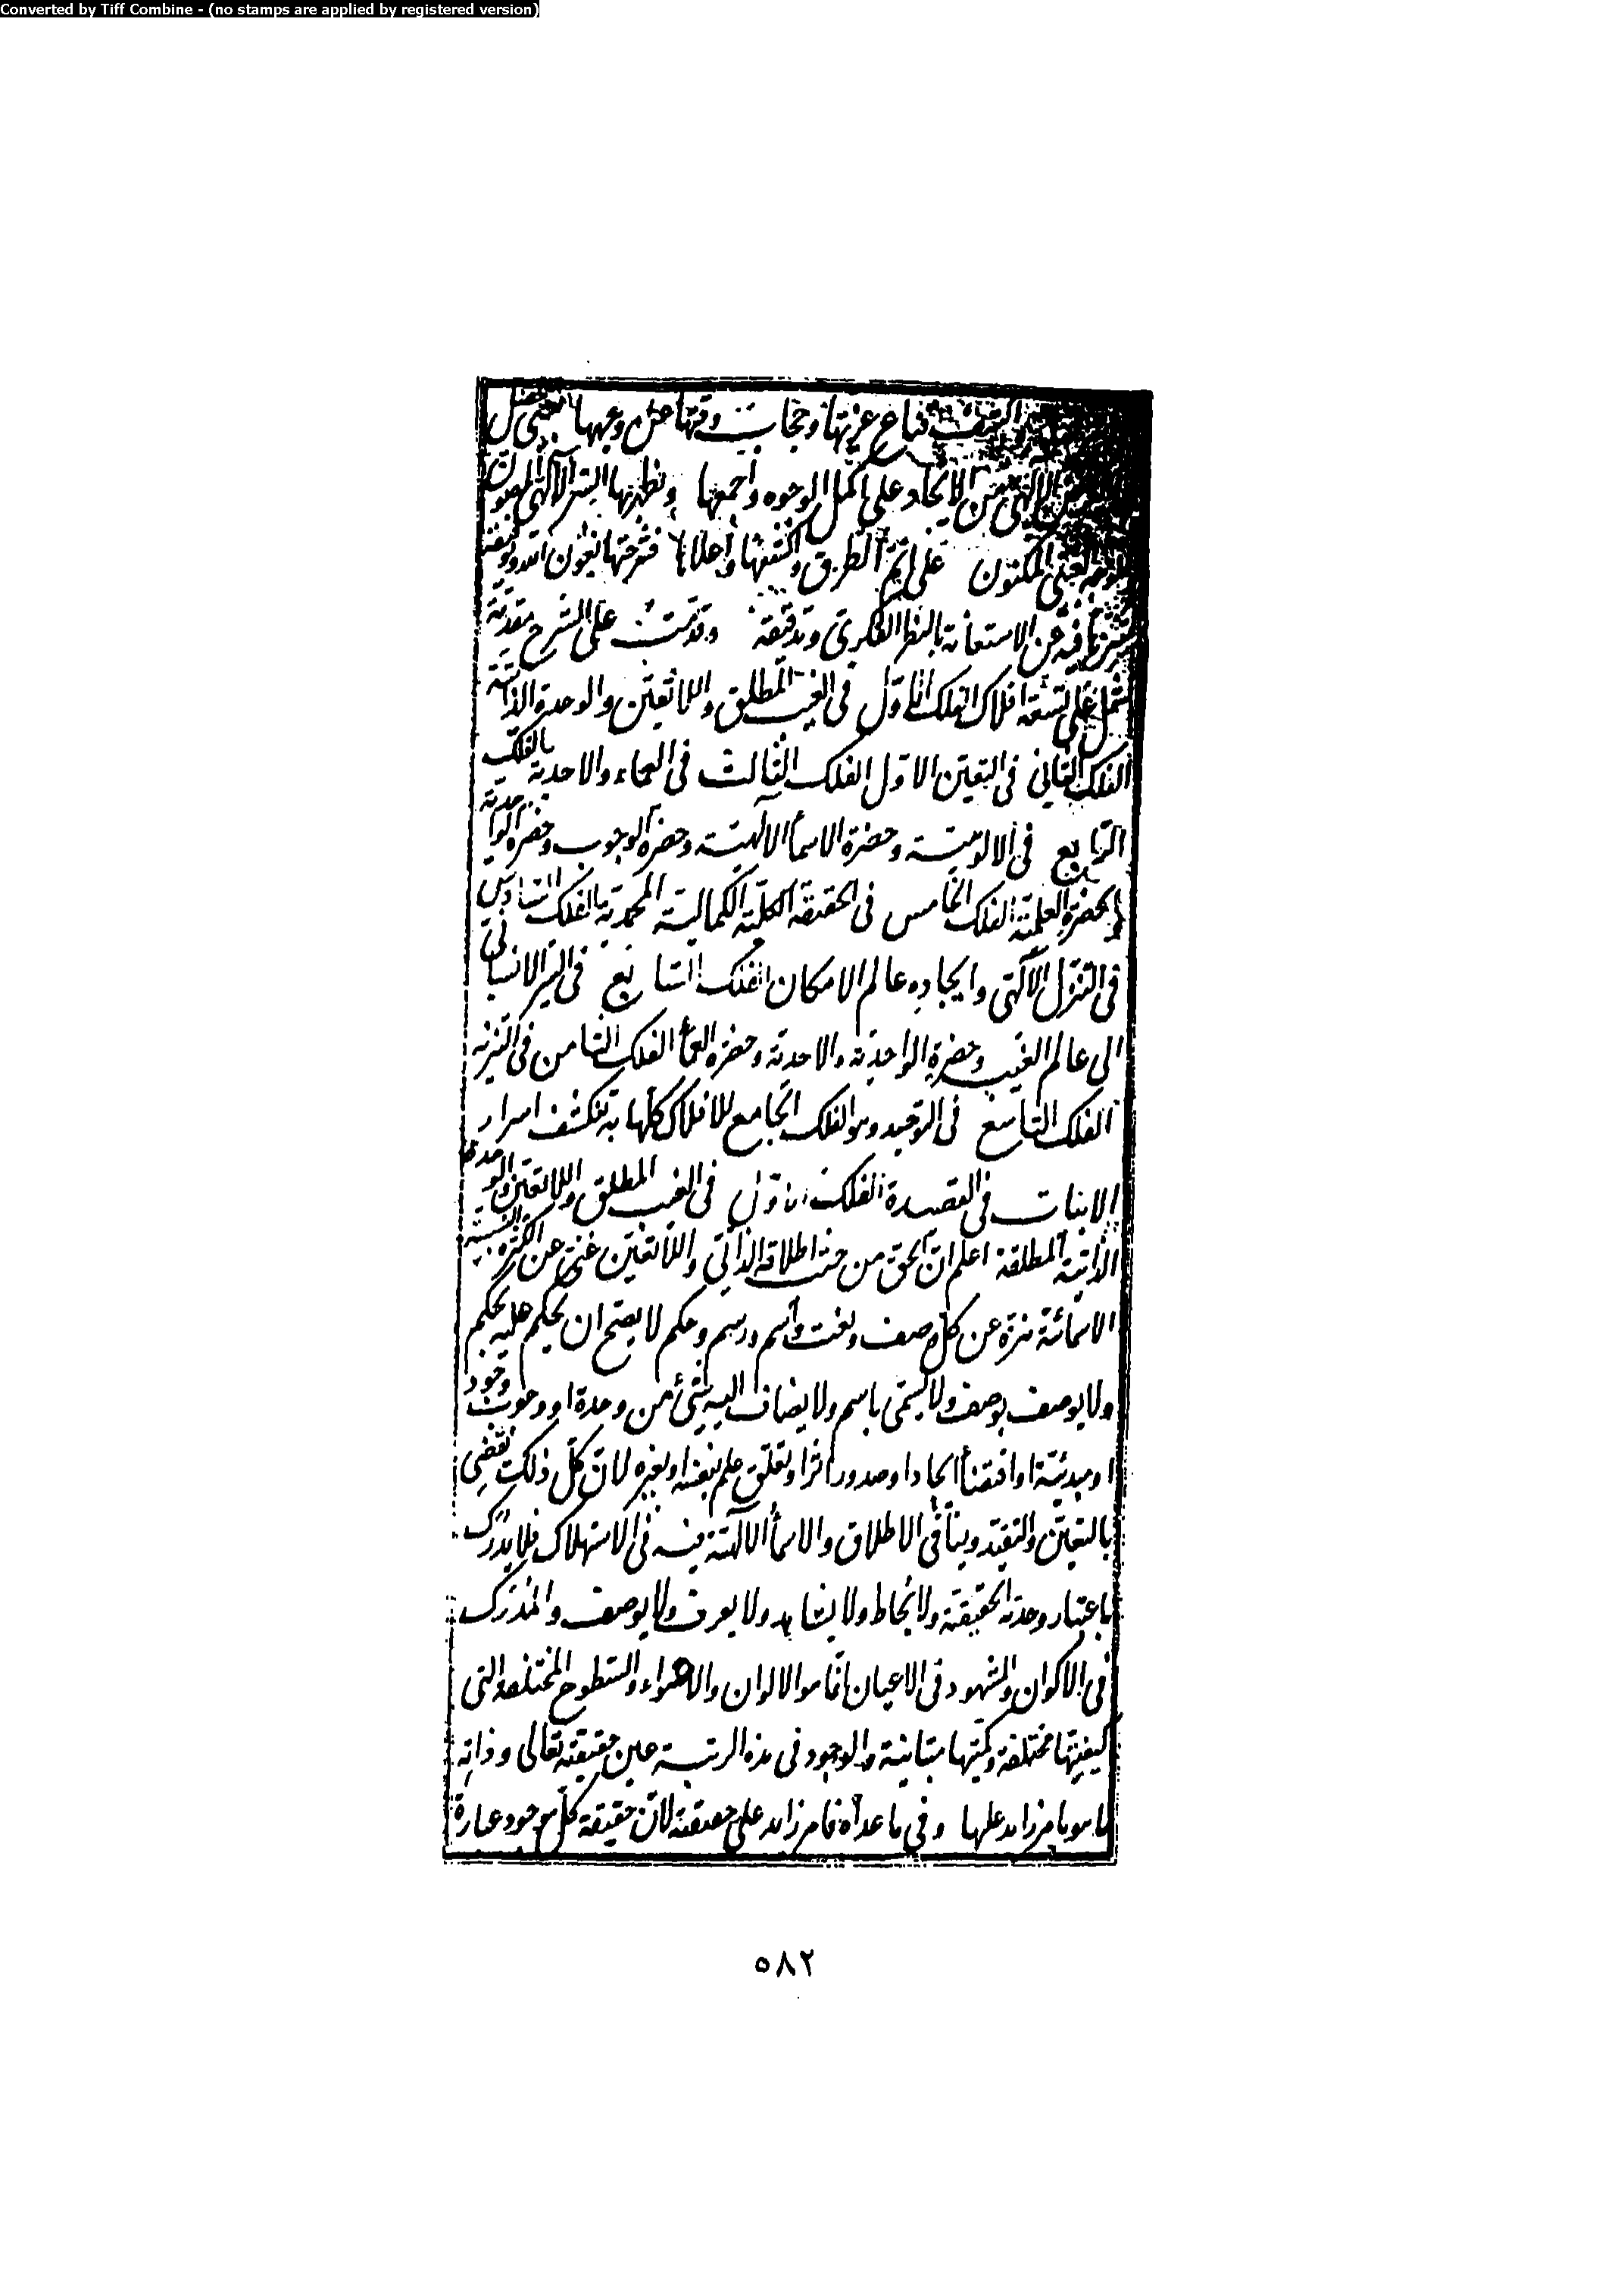 Converted by Tiff Combine - (no stamps are applied by registered version)
قناع عزتها وحجاب وقتها عن وجهها
الالهى من الايجاد على اكمل الوجوه واجمعها ونظهر بها السر الالهى المصون
الغيبى المكنون على اتم الطرق واكشفها واعلاها فشرحتها بعون الله وتوفيقه
فيه عن الاستعانة بالنظر الفكرى وتدقيقه وقدمت على الشرح مقدمة
تشتمل على تسعة افلاك الفلك الاول فى الغيب المطلق واللاتعين والوحدة الذاتية
الفلك الثانى فى التعين الاول الفلك الثالث فى العماء والاحدية الفلك
الرابع فى الالوهية وحضرة الاسماء الالهية وحضرة الوجوب وحضرة الواحدية
والحضرة العلمية الفلك الخامس فى الحقيقة الكلية الكمالية المحمدية الفلك السادس
فى التنزل الالهى وايجاده عالم الامكان الفلك السابع فى السير الانسانى
الى عالم الغيب وحضرة الواحدية والاحدية وحضرة العماء الفلك الثامن فى التنزيه
الفلك التاسع فى التوحيد وهو الفلك الجامع للافلاك كلها به تنكشف اسرار
الابيات فى القصيدة الفلك الاول فى الغيب المطلق واللاتعين والوحدة
الذاتية المطلقة اعلم ان الحق من حيث اطلاقه الذاتى واللاتعين غنى عن الكثرة النسبية
الاسمائية منزه عن كل وصف ونعت واسم ورسم وحكم لا يصح ان يحكم عليه بحكم
ولا يوصف بوصف ولا يسمى باسم ولا يضاف اليه شئ من وحدة او وجوب وجود
او مبدئية او اقتضاء ايجاد او صدور اثر او تعلق علم بنفسه او بغيره لان كل ذلك يقضى
بالتعين والتقيد وينافى الاطلاق والاسماء الالهية فيه فى الاستهلاك فلا يدرك
باعتبار وحدته الحقيقية ولا يحاط ولا يشاهد ولا يعرف ولا يوصف والمدرك
فى الاكوان والمشهود فى الاعيان انما هو الالوان والاضواء والسطوح المختلفة التى
كيفيتها مختلفة وكميتها متباينة والوجود فى هذه الرتبة عين حقيقته تعالى وذاته
ما هو بامر زائد عليها وفى ما عداه فامر زائد على حقيقته لان حقيقة كل موجود عبارة
٥٨٢